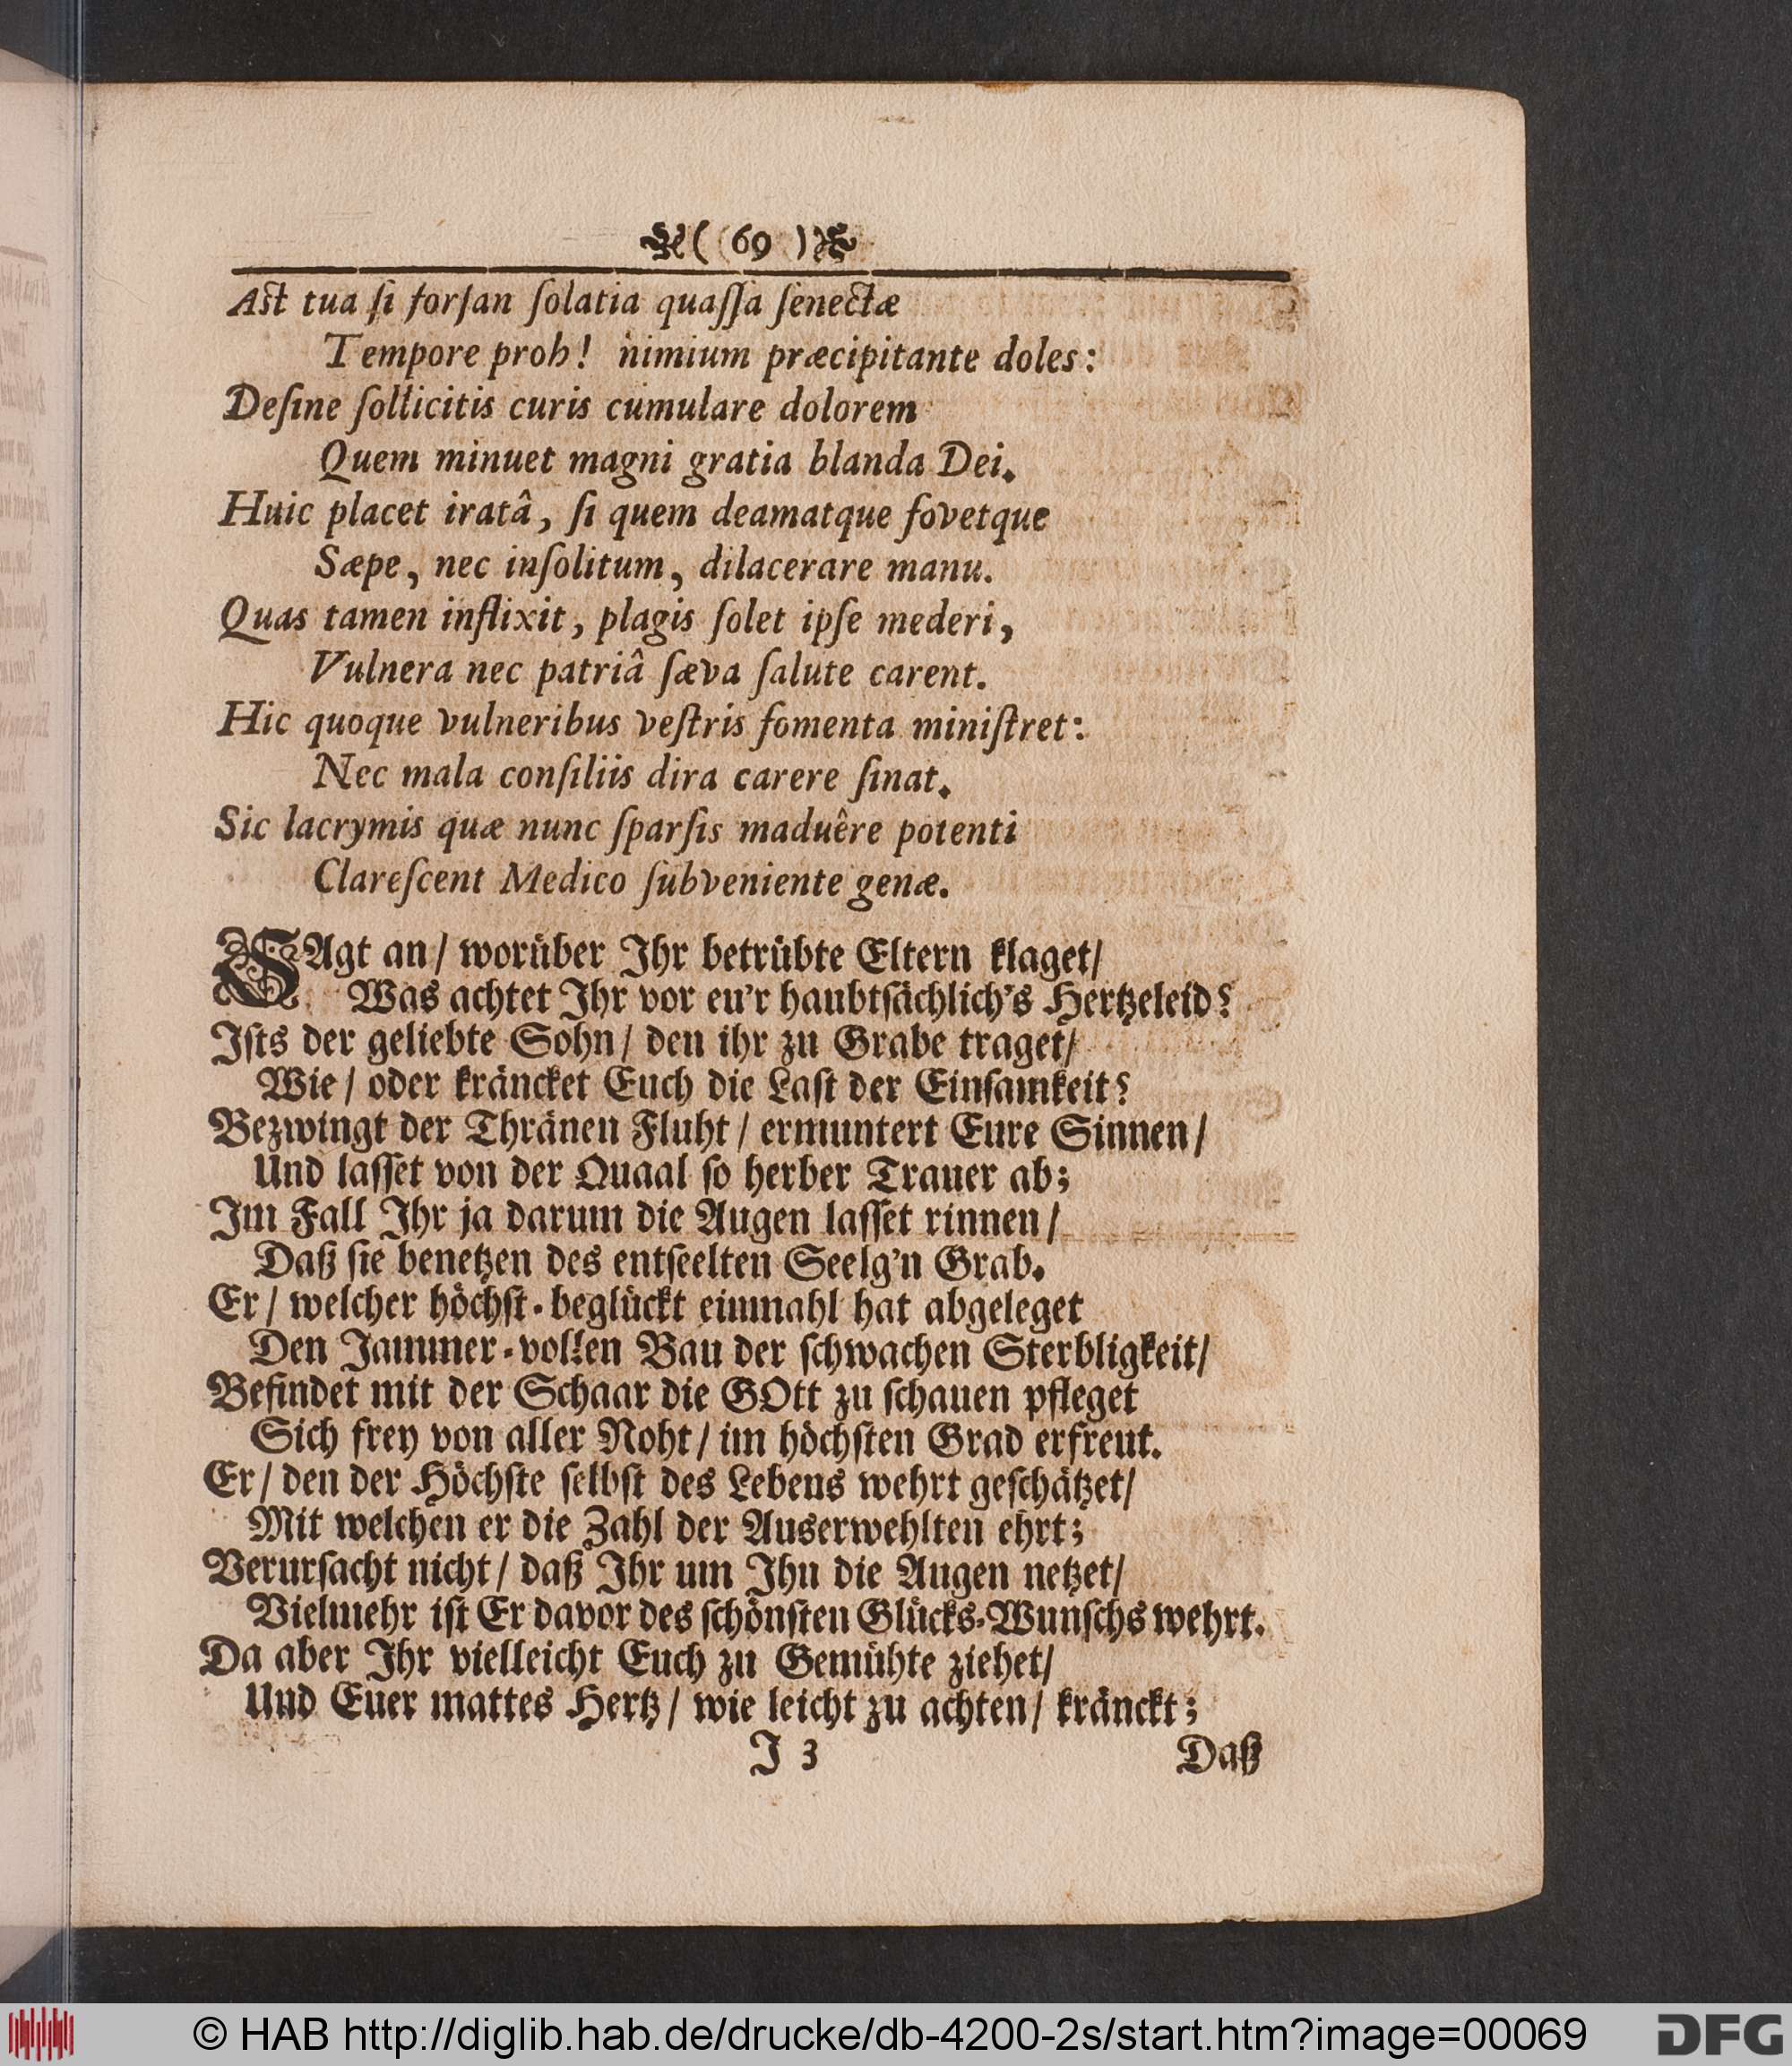 ( 69 )
Aſt tua ſi forſan ſolatia quaſſa ſenectæ
Tempore proh! nimium præcipitante doles:
Deſine ſollicitis curis cumulare dolorem
Quem minuet magni gratia blanda Dei.
Huic placet iratâ, ſi quem deamatque fovetque
Sæpe, nec inſolitum, dilacerare manu.
Quas tamen inflixit, plagis ſolet ipſe mederi,
Vulnera nec patriâ ſæva ſalute carent.
Hic quoque vulneribus veſtris fomenta miniſtret:
Nec mala conſiliis dira carere ſinat.
Sic lacrymis quæ nunc ſparſis maduêre potenti
Clareſcent Medico ſubveniente genæ.
SAgt an/ worüber Ihr betrübte Eltern klaget/
Was achtet Ihr vor eu'r haubtſächlich's Hertzeleid?
Iſts der geliebte Sohn/ den ihr zu Grabe traget/
Wie/ oder kräncket Euch die Laſt der Einſamkeit?
Bezwingt der Thränen Fluht/ ermuntert Eure Sinnen/
Und laſſet von der Quaal ſo herber Trauer ab;
Im Fall Ihr ja darum die Augen laſſet rinnen/
Daß ſie benetzen des entſeelten Seelg'n Grab.
Er/ welcher höchſt-beglückt einmahl hat abgeleget
Den Jammer-vollen Bau der ſchwachen Sterbligkeit/
Befindet mit der Schaar die GOtt zu ſchauen pfleget
Sich frey von aller Noht/ im höchſten Grad erfreut.
Er/ den der Höchſte ſelbſt des Lebens wehrt geſchätzet/
Mit welchen er die Zahl der Auserwehlten ehrt;
Verurſacht nicht/ daß Ihr um Ihn die Augen netzet/
Vielmehr iſt Er davor des ſchönſten Glücks-Wunſchs wehrt.
Da aber Ihr vielleicht Euch zu Gemühte ziehet/
Und Euer mattes Hertz/ wie leicht zu achten/ kränckt;
I 3
Daß
© HAB http://diglib.hab.de/drucke/db-4200-2s/start.htm?image=00069
DFG